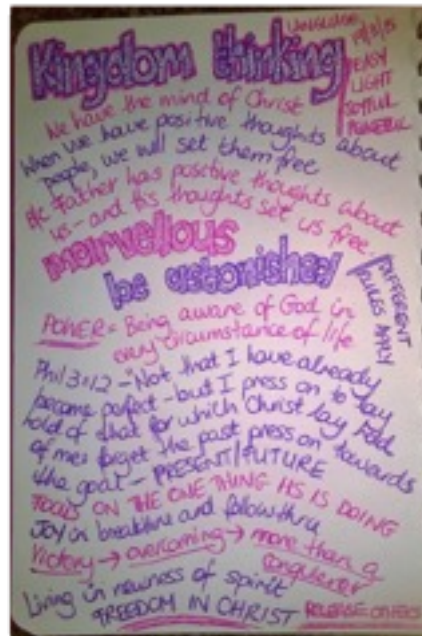 Kingdom thinking
LANGUAGE
EASY
LIGHT
POWERFUL
We have the mind of Christ
When we have positive thoughts about
people, we will set them free
B/c Father has positive thoughts about
us - and His thoughts set us free
marvellous
be astonished
DIFFERENT
RULES APPLY
POWER = Being aware of God in
every circumstance of life
Phil 3:12 - "Not that I have already
become perfect - but I press on to lay
hold of that for which Christ lay hold
of me: forget the past press on towards
the goal - PRESENT/FUTURE
FOCUS ON THE ONE THING HS IS DOING
Joy in breakthru and followthru
Victory → overcoming → more than a
conqueror
Living in newness of spirit
FREEDOM IN CHRIST
RELEASE